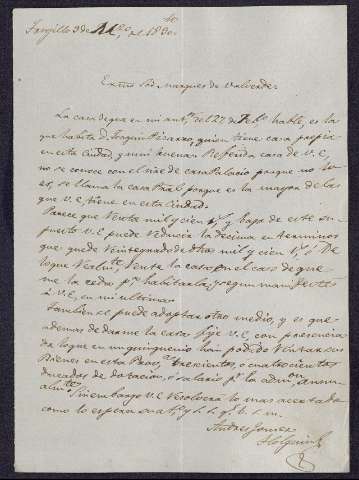 Trujillo 3 de M.zo de 1830.
Excmo Sõr Marques de Valverde:
La casa de que en mi ant.r del 27 de Feb.o hable, es la
que habita D. Joaquin Pizarro, quien tiene casa propia
en esta Ciudad, y mui buena. Referida casa de V.E,
no se conoce con el de casa Palacio porque no lo
es, se llama la casa Pral porque es la mayor de las
que V.E, tiene en esta Ciudad.
Parece que Veinte mil y cien r.s, y bajo de este su-
puesto V.E puede reducir la decima en terminos
que quede reintegrado de otros mil y cien r.s, ó de
lo que reste, venta la casa en el caso de que
me la ceda p.a habitarla, segun manifeste
á V.E, en mi ultima.
Tambien se puede adaptar otro medio, y es que
ademas de darme la casa fije V.E, con presencia
de lo que en un quinquenio han podido sus
Bienes en esta trescientos, ó cuatrocientos
ducados de dotacion, ó salario p.r la adm.on annu-
alm.te. Sin embargo V.E resolverá lo mas acertado
como lo espera su at.o y s. s. q. b. s. m.
Andres Gomez
Holguin